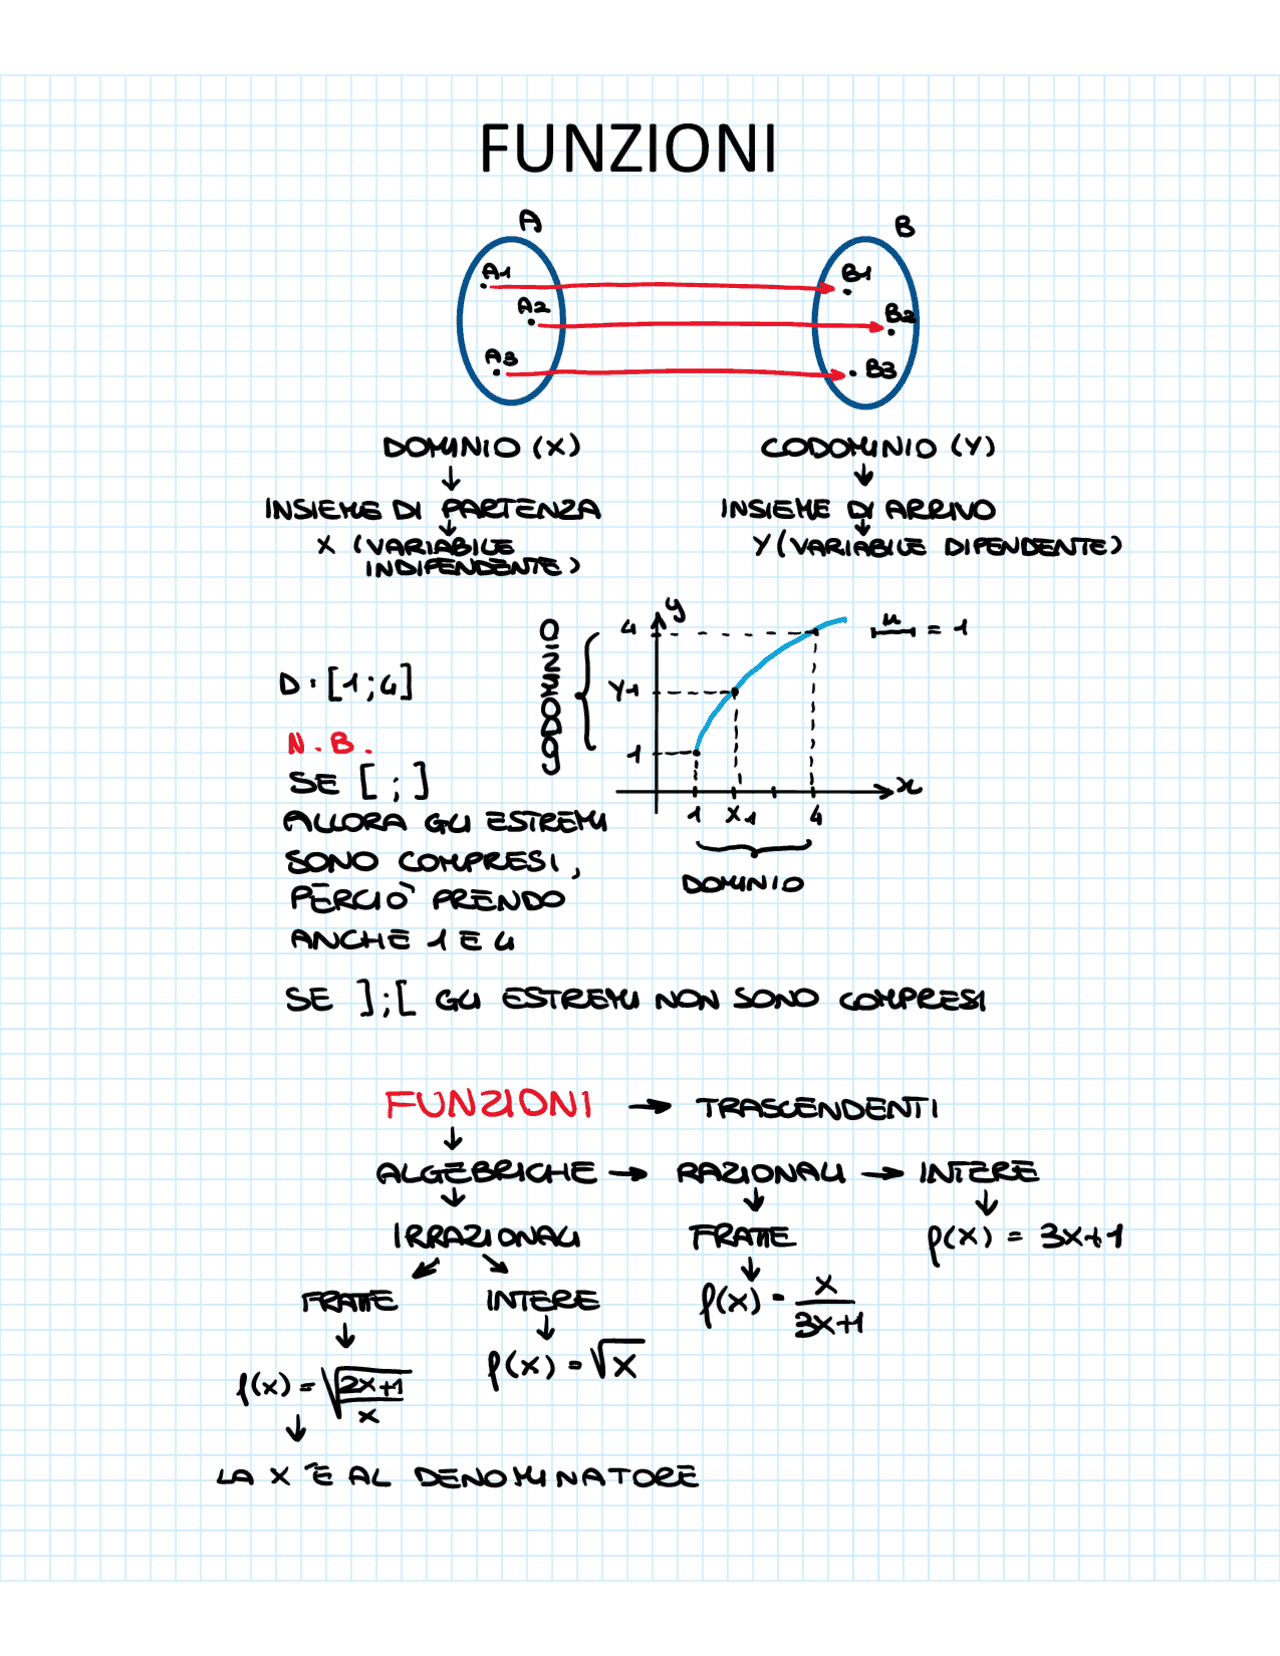 FUNZIONI
A B
A1 B1
A2 B2
A3 B3
DOMINIO (X) CODOMINIO (Y)
↓ ↓
INSIEME DI PARTENZA INSIEME DI ARRIVO
↓ ↓
X (VARIABILE Y (VARIABILE DIPENDENTE)
INDIPENDENTE)
y
4
u = 1
CODOMINIO
Y1
D: [1;4]
N.B.
1
SE [ ; ]
x
1 X1 4
ALLORA GLI ESTREMI
SONO COMPRESI,
DOMINIO
PERCIÒ PRENDO
ANCHE 1 E 4
SE ];[ GLI ESTREMI NON SONO COMPRESI
FUNZIONI → TRASCENDENTI
↓
ALGEBRICHE → RAZIONALI → INTERE
↓ ↓ ↓
IRRAZIONALI FRATTE f(x) = 3x+1
↙ ↘ ↓
FRATTE INTERE f(x) = x/3x+1
↓ ↓
f(x) = √x
f(x) = √2x+1/x
↓
LA X È AL DENOMINATORE